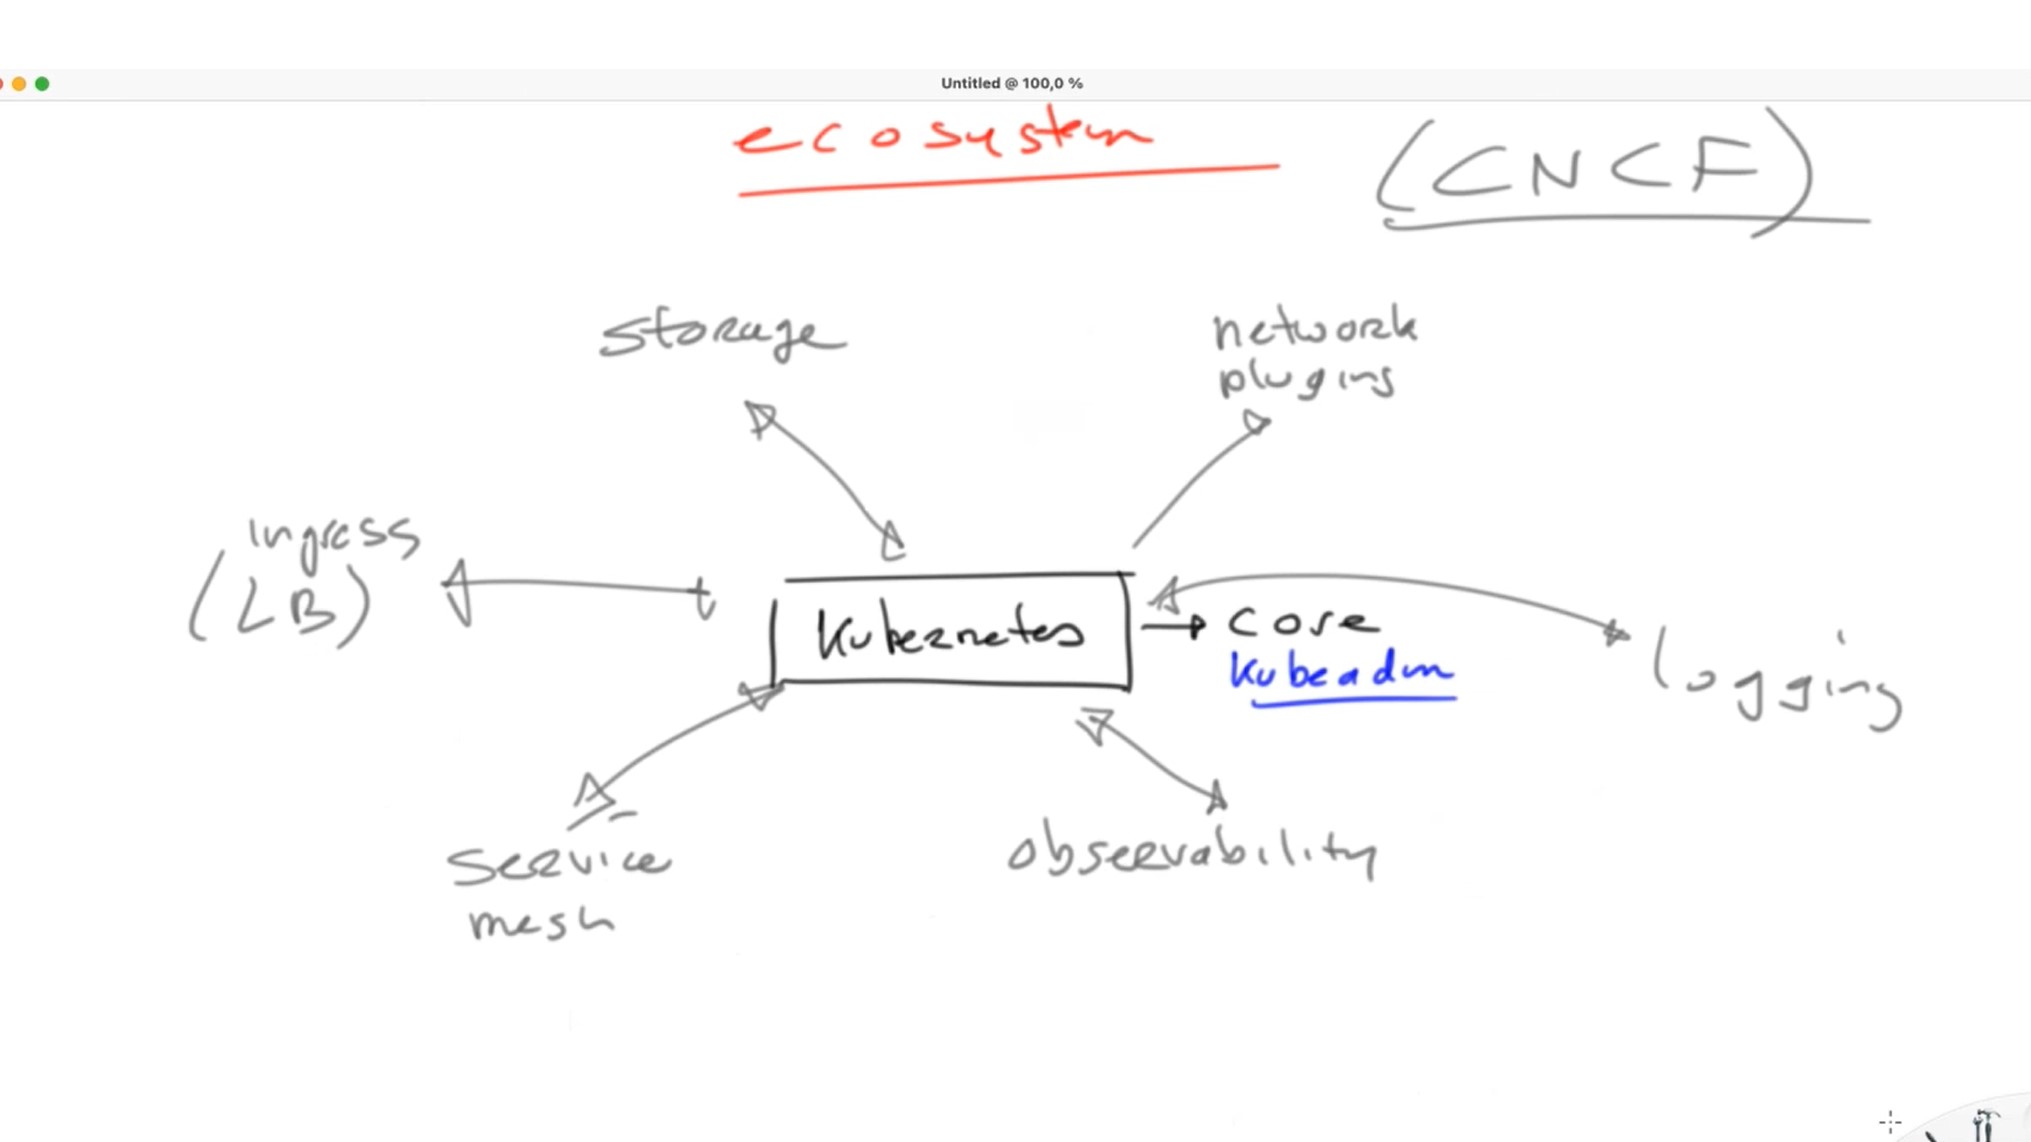 Untitled @ 100,0 %
ecosystem
(CNCF)
storage
network
plugins
ingress
(LB)
Kubernetes
core
Kubeadm
logging
service
mesh
observability